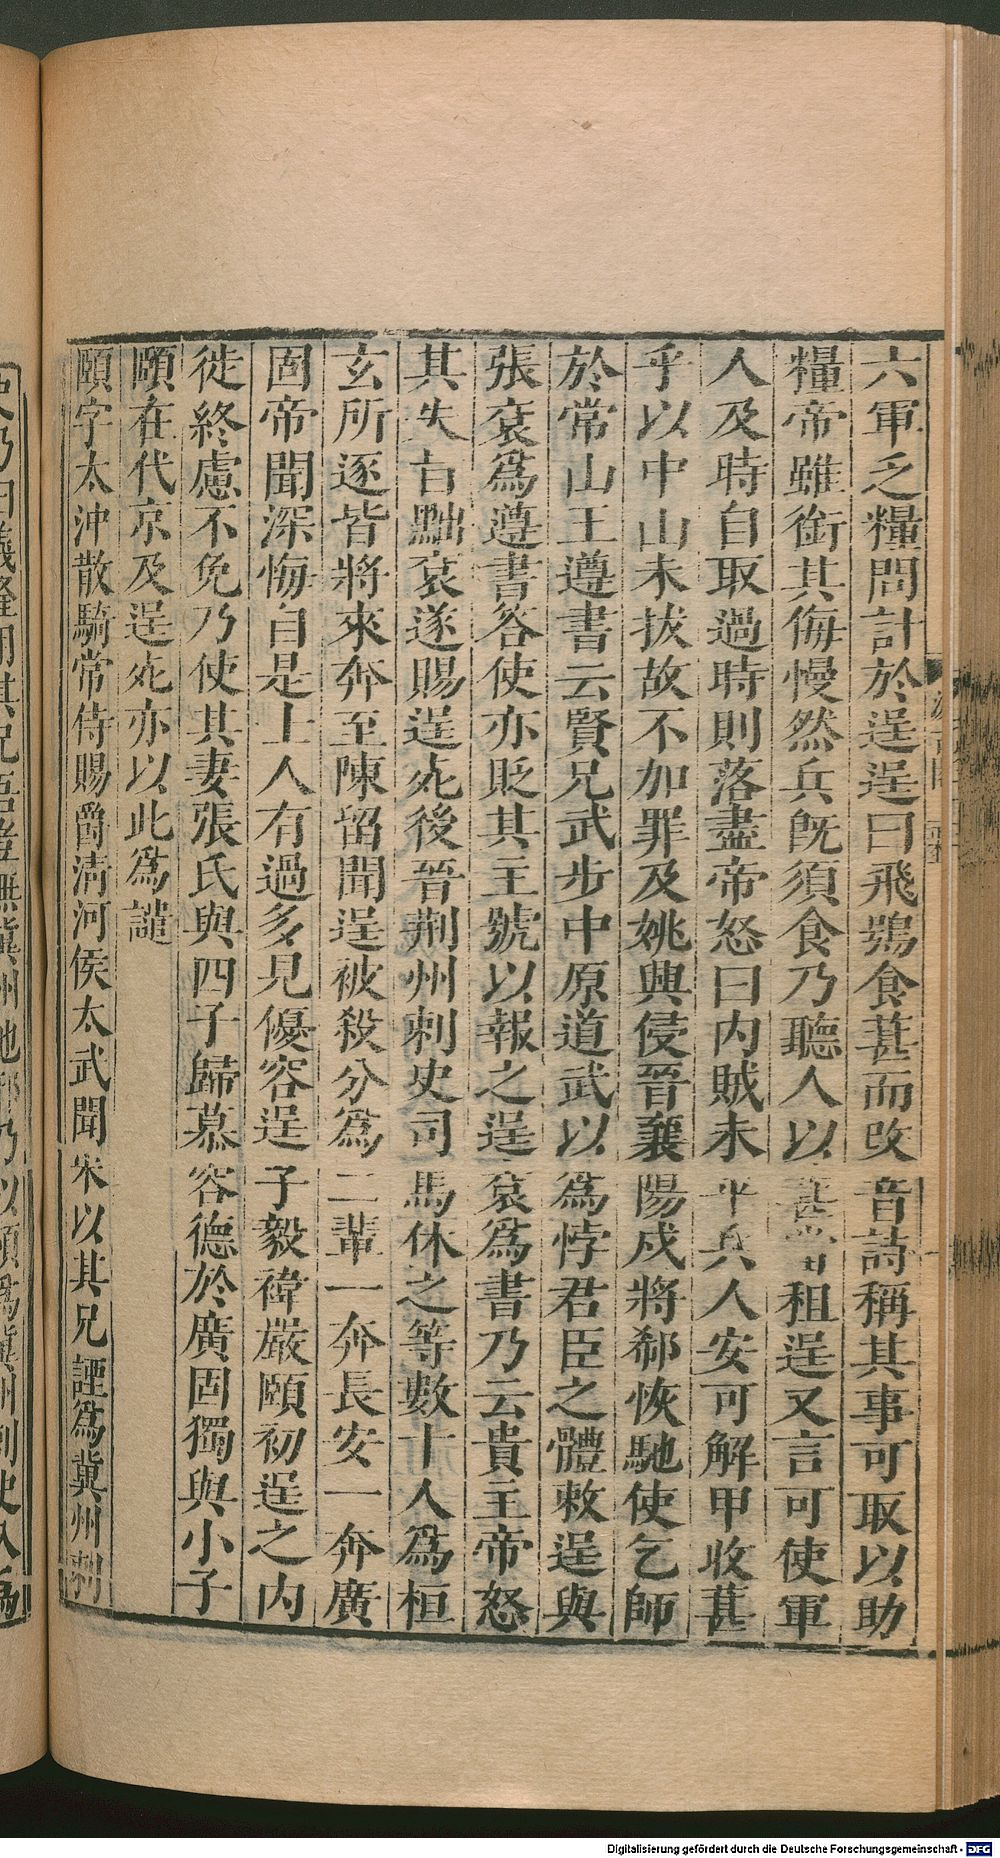 六軍乏糧問計於逞逞曰飛鴞食葚而改音詩稱其事可取以助
糧帝雖銜其侮慢然兵既須食乃聽人以葚當租逞又言可使軍
人及時自取過時則落盡帝怒曰內賊未平兵人安可解甲收葚
乎以中山未拔故不加罪及姚興侵晉襄陽戍將郗恢馳使乞師
於常山王遵書云賢兄武步中原道武以為悖君臣之體敕逞與
張袞為遵書答使亦貶其主號以報之逞袞為書乃云貴主帝怒
其失旨黜袞遂賜逞死後晉荊州刺史司馬休之等數十人為桓
玄所逐皆將來奔至陳留聞逞被殺分為二輩一奔長安一奔廣
固帝聞深悔自是士人有過多見優容逞子毅禕嚴頤初逞之內
徙終慮不免乃使其妻張氏與四子歸慕容德於廣固獨與小子
頤在代京及逞死亦以此為譴
頤字太沖散騎常侍賜爵清河侯太武聞宋以其兄諲為冀州刺